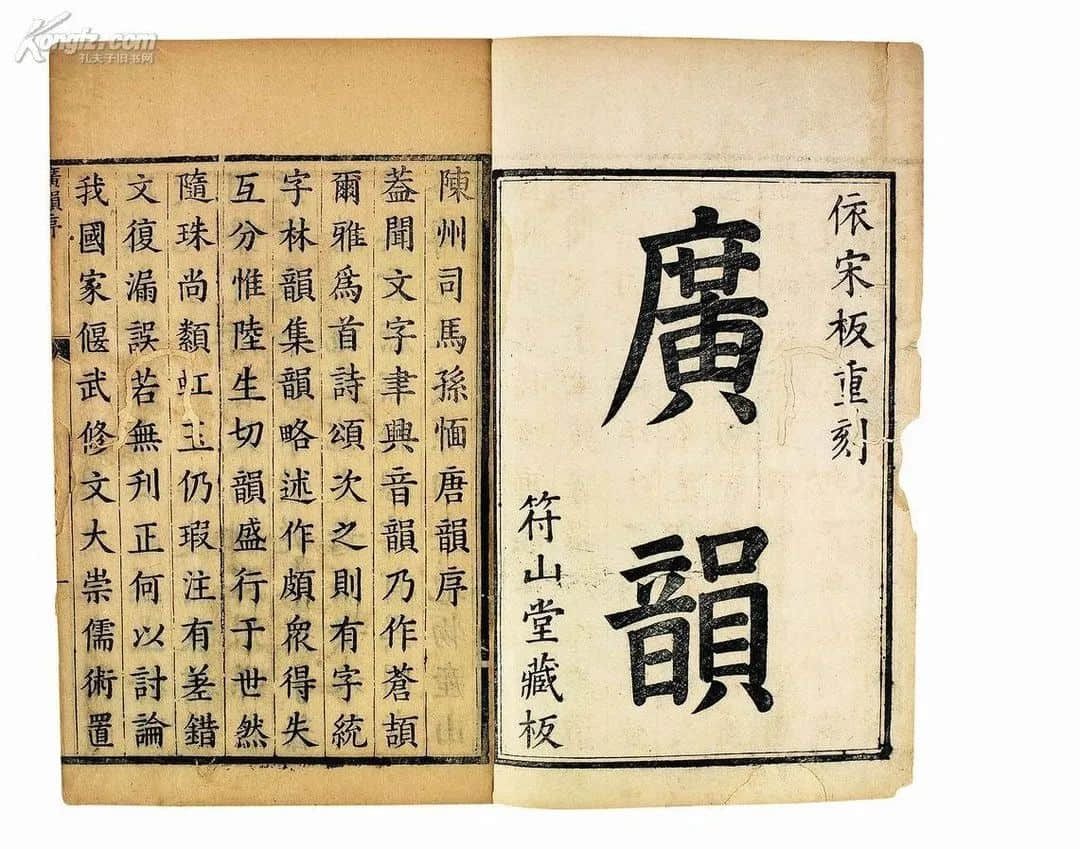 Kongfz.com
孔夫子旧书网
依宋板重刻
廣韻
符山堂藏板
陳州司馬孫愐唐韻序
葢聞文字聿興音韻乃作蒼頡
爾雅爲首詩頌次之則有字統
字林韻集韻略述作頗衆得失
互分惟陸生切韻盛行于世然
隨珠尚纇虹玉仍瑕注有差錯
文復漏誤若無刋正何以討論
我國家偃武修文大崇儒術置
廣韻序
一